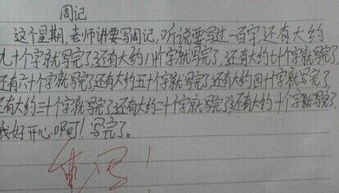 周记
这个星期,老师讲要写周记,听说要写过一百字还有大约
九十个字就写完了还有大约八十个字就写完了,还有大约七十个字就写完了
还有六十个字就写完了还有大约五十个字就写完了还有大约四十个字就写完了
还有大约三十个字就写完了还有大约二十个字就写完了还有大约十个字就写完了
我好开心啊!写完了。
重写!